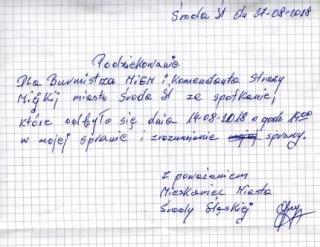 Środa Śl dn 27-08-2018
Podziękowanie
Dla Burmistrza MiGM i Komendanta Straży
Miejskiej miasta Środa Śl za spotkanie,
które odbyło się dnia 14-08-2018 o godz 11,00
w mojej sprawie i zrozumienie sprawy.
Z poważaniem
Mieszkaniec Miasta
Środy Śląskiej